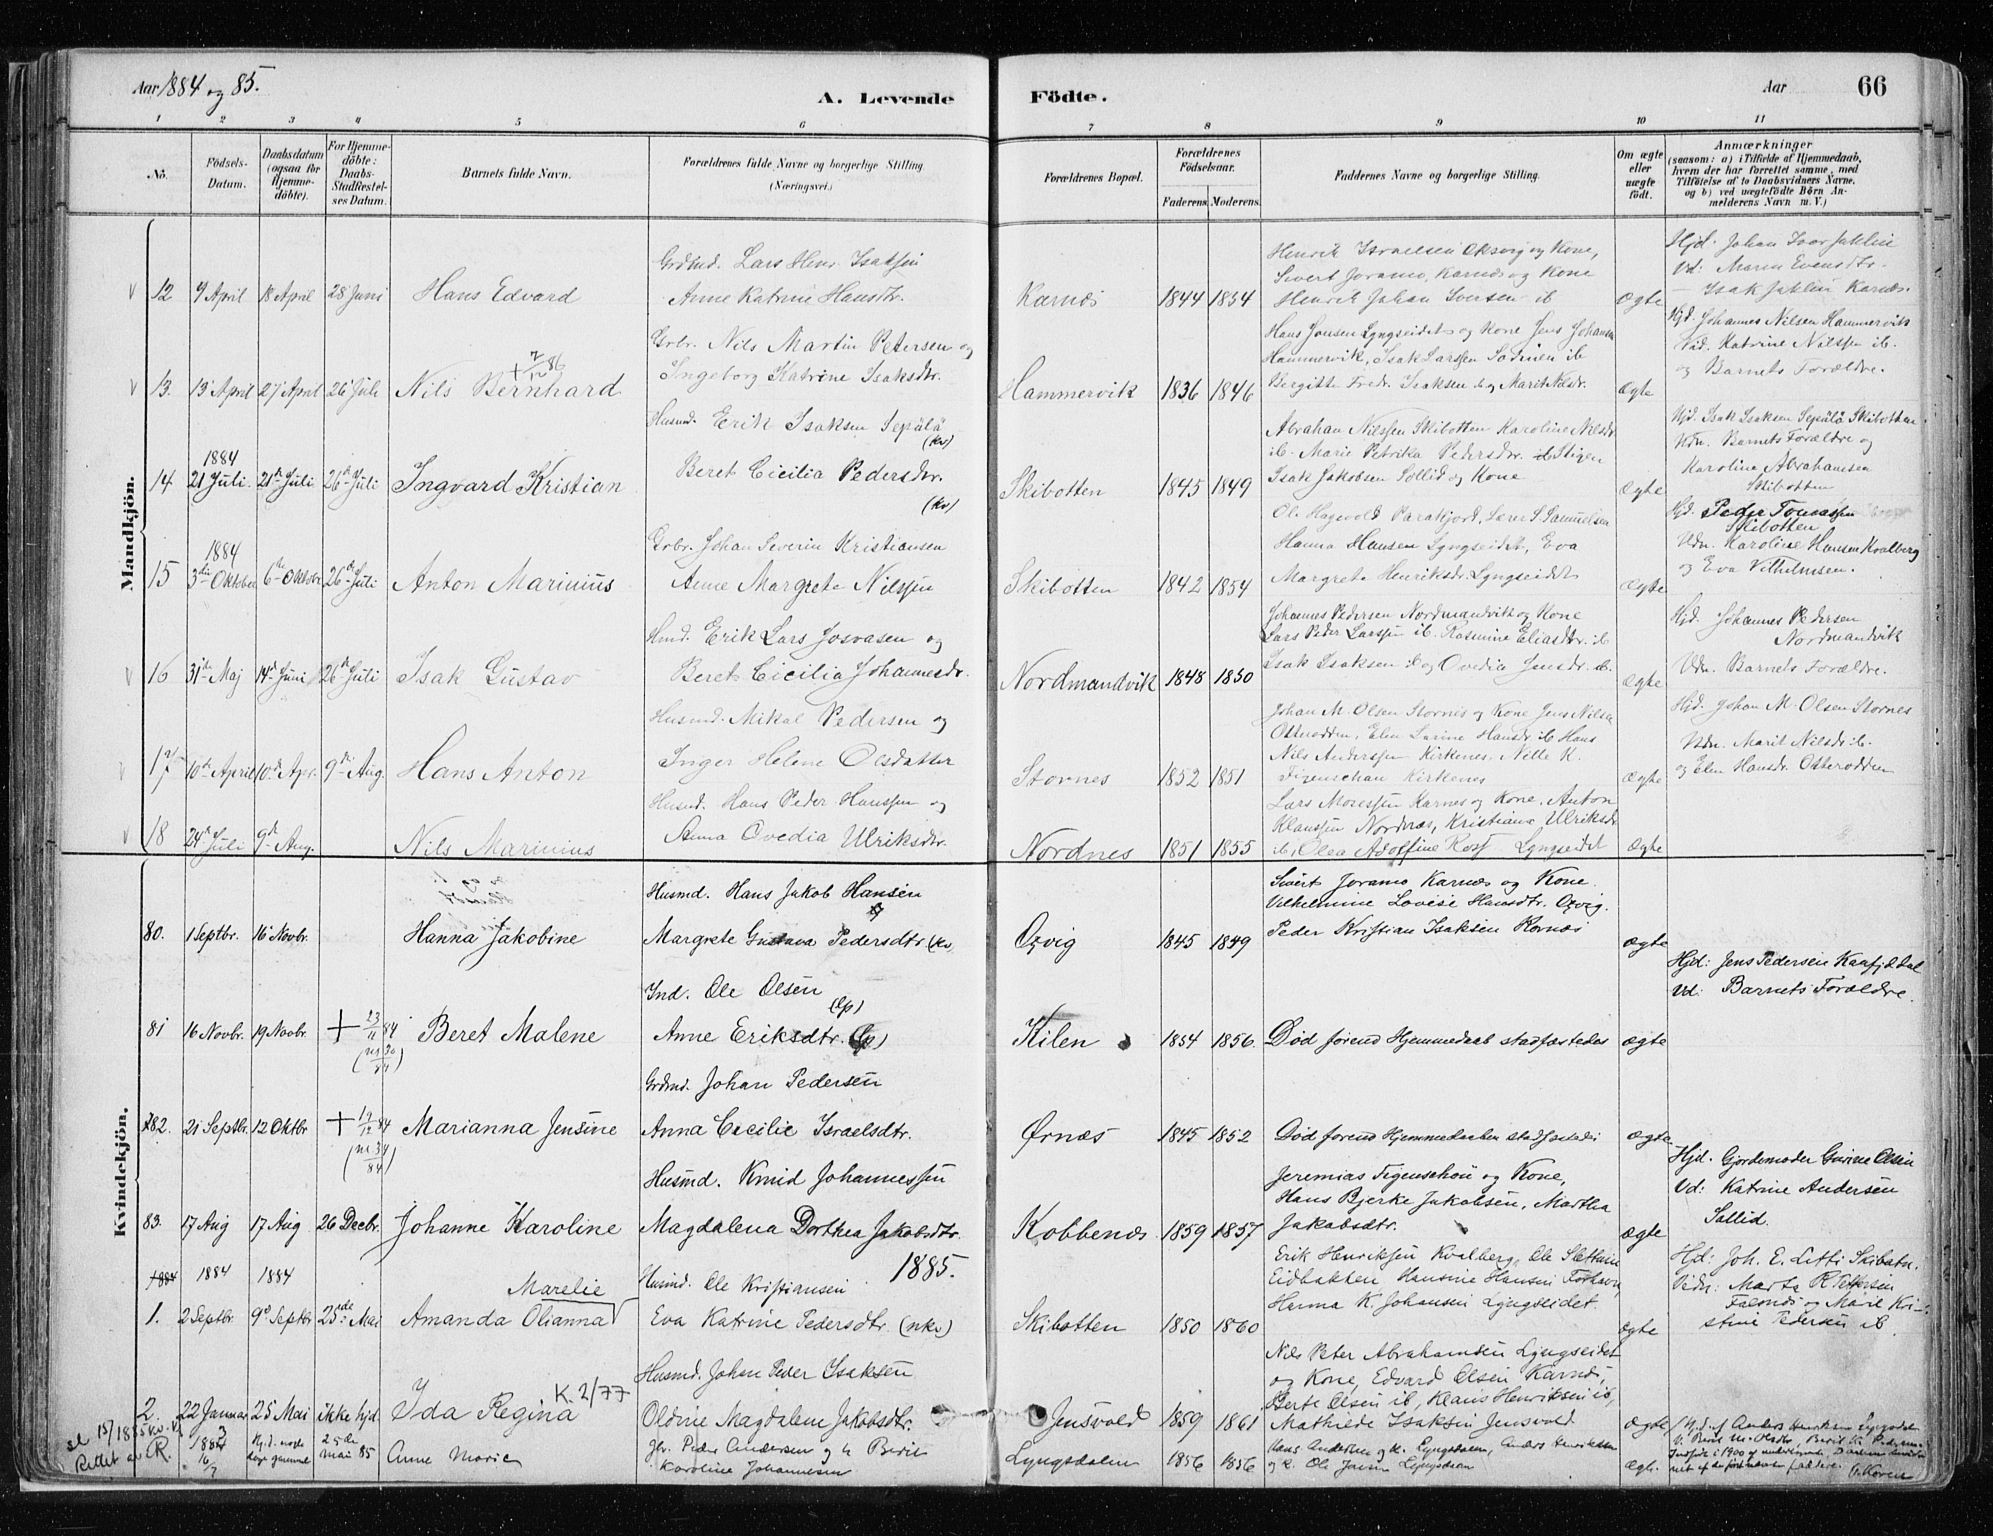 Aar 1884 og 85.
A. Levende Födte.
Aar 66
1 2 3 4 5 6 7 8 9 10 11
No.
Födsels-Datum.
Daabsdatum (ogsaa for Hjemmedöbte).
For Hjemmedöbte: Daabs-Stadfæstelses Datum.
Barnets fulde Navn.
Forældrenes fulde Navne og borgerlige Stilling (Næringsvei.)
Forældrenes Bopæl.
Forældrenes Födselsaar.
Faderens. Moderens.
Faddernes Navne og borgerlige Stilling.
Om ægte eller uægte födt.
Anmærkninger
(saasom: a) i Tilfælde af Hjemmedaab, hvem der har forrettet samme, med Tilföielse af to Daabsvidners Navne, og b) ved uægtefödte Börn Anmelderens Navn m. V.)
Mandkjön.
12 9 April 18 April 28 Juni Hans Edvard
Grdmd. Lars Henr. Isaksen
Anne Katrine Hansdtr.
Karnes 1844 1834
Henrik Israelsen Oksvig og Kone,
Sivert Joramo, Karnes og Kone
Henrik Johan Iversen ib
ægte
Hjd. Johan Ivar Jahlin
Vd: Maren Evensdtr.
Isak Jahlin Karnæs.
13. 13 April 27 April 26 Juli Nils Bernhard
Grbr. Nils Martin Petersen og
Ingeborg Katrine Isaksdtr.
Hammervik 1836 1846
Hans Jonsen Lyngseidet og Kone Jens Johansen
Hammervik, Isak Larssen Sodnien ib
Bergitte Fredr. Isaksen ib og Marit Nilsdr.
ægte
Hjd. Johannes Nilsen Hammervik
Vid. Katrine Nilssen ib.
og Barnets Forældre.
14 1884
21 Juli. 21de Juli 26de Juli Ingvard Kristian
Husmd. Erik Isaksen Sepälä (kv)
Beret Cicilia Pedersdtr. (kv)
Skibotten 1845 1849
Abrahan Nilssen Skibotten Karoline Nilsdr
ib. Marie Petrika Pedersdr. Stigen
Isak Jakobsen Sollid og Kone
ægte
Hjd. Isak Isaksen Sepälä Skibotten
Vdn. Barnets Forældre og
Karoline Abrahamsen
Skibotten
15 1884
3die Oktober 6te Oktobr 26de Juli Anton Marinius
Grbr. Johan Severin Kristiansen
Anne Margrete Nilssen
Skibotten 1842 1854
Ole Hagevold Parakjord, Lærer S. Samuelsen
Hanna Hansen Lyngseidet, Eva
Margrete Henriksdr. Lyngseidet
ægte
Hjd. Peder Tomassen
Skibotten
Vdn. Karoline Hansen Kvalberg
og Eva Vilhelmsen.
16 31te Maj 14de Juni 26de Juli Isak Gustav
Hmd. Erik Lars Josvasen og
Beret Cicilia Johannesdr.
Nordmandvik 1848 1850
Johannes Pedersen Nordmandvik og Kone
Lars Peder Larssen ib. Rasmine Eliasdtr. ib
Isak Isaksen ib og Ovedia Jensdr. ib.
ægte
Hjd. Johannes Pedersen
Nordmandvik
Vdn. Barnets Forældre.
17 10de April 10de Apr. 9de Aug. Hans Anton
Husmd. Mikal Pedersen og
Inger Helene Olsdatter
Stornes 1852 1851
Johan M. Olsen Stornes og Kone Jens Nilsa
Otterodden, Elen Larine Hansdr ib Hans
Nils Anderssen Kirkenes, Nille K.
Figenschau Kirkenes
ægte
Hjd. Johan M. Olsen Stornes
Vdn. Marit Nilsdr ib.
og Elen Hansdr. Otterodden
18 24de Juli 9de Aug. Nils Marinius
Husmd. Hans Peder Hanssen og
Anna Ovedia Ulriksdtr.
Nordnes 1851 1855
Lars Monssen Karnes og Kone, Anton
Klaussen Nordnæs, Kristiana Ulriksdr
ib, Olea Adolfine Rost Lyngseidet
ægte
Kvindekjön.
80. 1 Septbr. 16 Novbr. Hanna Jakobine
Husmd. Hans Jakob Hansen
Margrete Gustava Pedersdtr (kv
Oxvig 1845 1849
Sivert Joramo Karnæs og Kone
Vilhelmine Lovise Hansdtr. Oxvig.
Peder Kristian Isaksen Kornæs
ægte
81 16 Novbr. 19 Novbr. + 23/11 84 (nr. 30/84) Beret Malene
Ind. Ole Olsen (lp)
Anne Eriksdtr. (lp)
Kilen 1854 1856.
Død førend Hjemmedaab stadfæstedes
ægte
Hjd: Jens Pedersen Kaafjddal
Vd: Barnets Forældre.
82. 21 Septbr. 12 Oktbr + 19/12 84 (nr. 34/84) Marianna Jensine
Grdmd. Johan Pedersen
Anna Cecilie Israelsdtr.
Ørnæs 1845 1852
Død førend Hjemmedaaben stadfæstedes
ægte
83. 17 Aug 17 Aug 26 Decbr. Johanne Karoline
Husmd. Knud Johannessen
Magdalena Dorthea Jakobsdtr.
Kobbenæs 1859 1857
Jeremias Figenschou og Kone,
Hans Bjerke Jakobsen, Martha
Jakobsdtr.
ægte
Hjd. Gjordemoder Gurine Olsen
Vd: Katrine Andersen
Sollid.
1885.
1884 1884 1884
1. 2 Septbr. 9de Septbr 25de Mai Amanda Olianna Marelie
Husmd. Ole Kristiansen
Eva Katrine Pedersdtr. (nkv)
Skibotten 1850 1860
Erik Henriksen Kvalberg, Ole Slettnin
Eidbakken Hansine Hansen
Hanna K. Johansen Lyngseidet.
ægte
Hjd: Joh. E. Litti Skibotn.
Vidr: Marta R. Pettersen
Falsnes og Marie Kri-
stine Pedersen ib.
2. 22 Januar 25 Mai ikke hjd. Ida Regina K. 2/77
Husmd. Johan Peder Isaksen
Oldine Magdalena Jakobsdtr.
Jensvold 1859 1861
Nils Peter Abrahamsen Lyngseidet
og Kone, Edvard Olsen Karnes,
Berte Olsen ib, Klaus Henriksen ib,
Mathilde Isaksen Jensvold
ægte
Rettet av R.
16/7 Kjd. 25de Mai 85 Anne Marie
Gbr. Peder Andersen og h. Berit
Karoline Johannesen
Lyngsdalen 1856 1856
Hans Andersen og k. Lyngsdalen, Anders Henriksen
og k. Ole Jansen Lyngsdalen
ægte.
Hjd. af Anders Henriksen Lyngsdalen